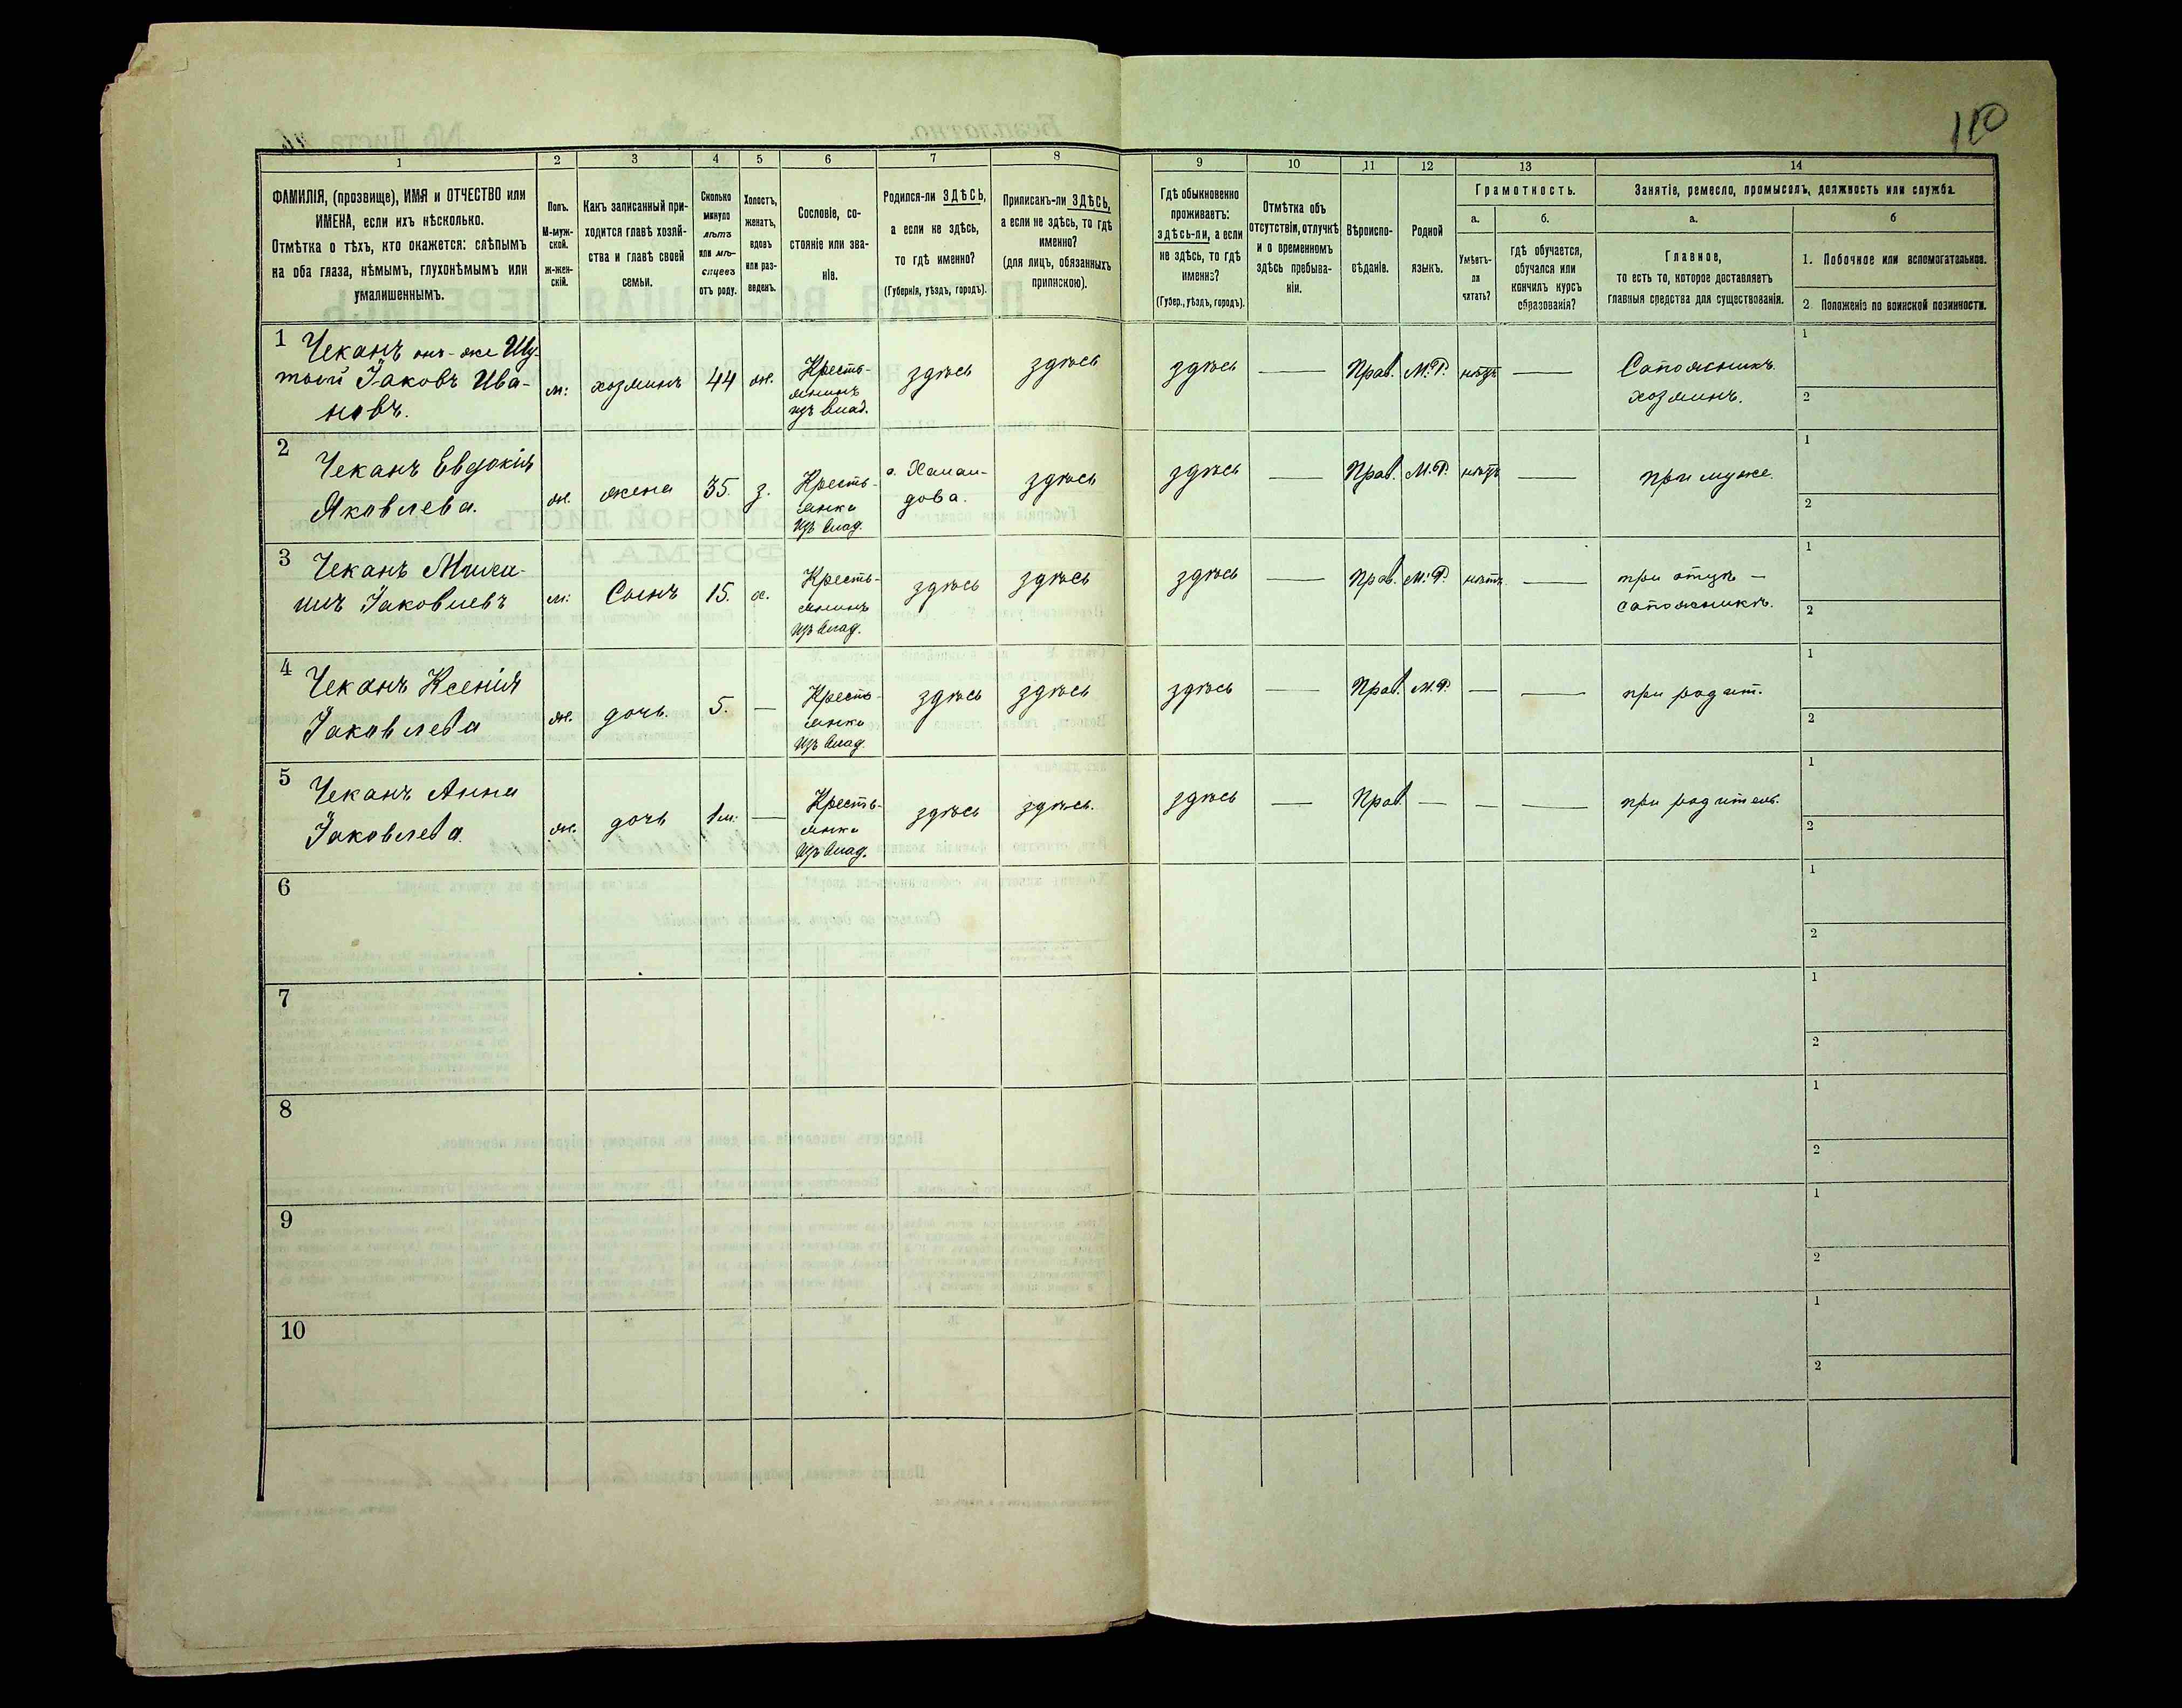 110
1 2 3 4 5 6 7 8 9 10 11 12 13 14
ФАМИЛІЯ, (прозвище), ИМЯ и ОТЧЕСТВО или
ИМЕНА, если ихъ нѣсколько.
Отмѣтка о тѣхъ, кто окажется: слѣпымъ
на оба глаза, нѣмымъ, глухонѣмымъ или
умалишеннымъ.
Полъ.
М-муж-
ской.
ж-жен-
скій.
Какъ записанный при-
ходится главѣ хозяй-
ства и главѣ своей
семьи.
Сколько
минуло
лѣтъ
или мѣ-
сяцевъ
отъ роду.
Холостъ,
женатъ,
вдовъ
или раз-
веденъ.
Сословіе, со-
стояніе или зва-
ніе.
Родился-ли ЗДѢСЬ,
а если не здѣсь,
то гдѣ именно?
(Губернія, уѣздъ, городъ).
Приписанъ-ли ЗДѢСЬ,
а если не здѣсь, то гдѣ
именно?
(для лицъ, обязанныхъ
припискою).
Гдѣ обыкновенно
проживаетъ:
здѣсь-ли, а если
не здѣсь, то гдѣ
именно?
(Губер., уѣздъ, городъ).
Отмѣтка объ
отсутствіи, отлучкѣ
и о временномъ
здѣсь пребыва-
ніи.
Вѣроиспо-
вѣданіе.
Родной
языкъ.
Грамотность.
а. б.
Умѣетъ-
ли
читать?
гдѣ обучается,
обучался или
кончилъ курсъ
образованія?
Занятіе, ремесло, промыселъ, должность или служба.
а. б
Главное,
то есть то, которое доставляетъ
главныя средства для существованія.
1. Побочное или вспомогательное.
2. Положеніе по воинской повинности.
1 Чеканъ онъ-же Шу-
той Іаковъ Ива-
новъ.
м: хозяинъ 44 ж. Кресть-
янинъ
изъ влад. здѣсь здѣсь здѣсь — Прав. М.Р. нѣтъ — Сапожникъ
хозяинъ. 1
2
2 Чеканъ Евдокія
Яковлева.
ж. жена 35. з. Кресть-
янка
изъ влад.
дова. здѣсь здѣсь — Прав. М.Р. нѣтъ — при муже. 1
2
3 Чеканъ Михаи-
илъ Іаковлевъ
м: Сынъ 15. х. Кресть-
янинъ
изъ влад. здѣсь здѣсь здѣсь — Прав. М.Р. нѣтъ — при отцѣ —
сапожникѣ. 1
2
4 Чеканъ Ксенія
Іаковлева
ж. дочь. 5. — Кресть-
янка
изъ влад. здѣсь здѣсь здѣсь — Прав. М.Р. — — при родит. 1
2
5 Чеканъ Анна
Іаковлева
ж. дочь 1м: — Кресть-
янка
изъ влад. здѣсь здѣсь. здѣсь — Прав. — — — при родитель. 1
2
6 1
2
7 1
2
8 1
2
9 1
2
10 1
2